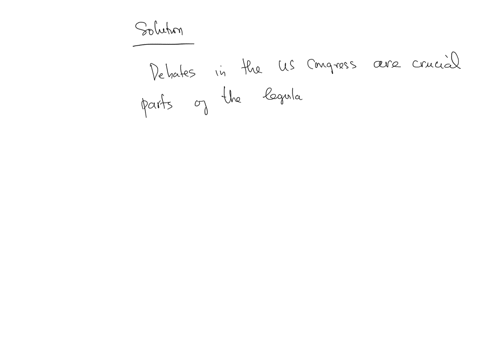 Solution
Debates in the US Congress are crucial
parts of the legula